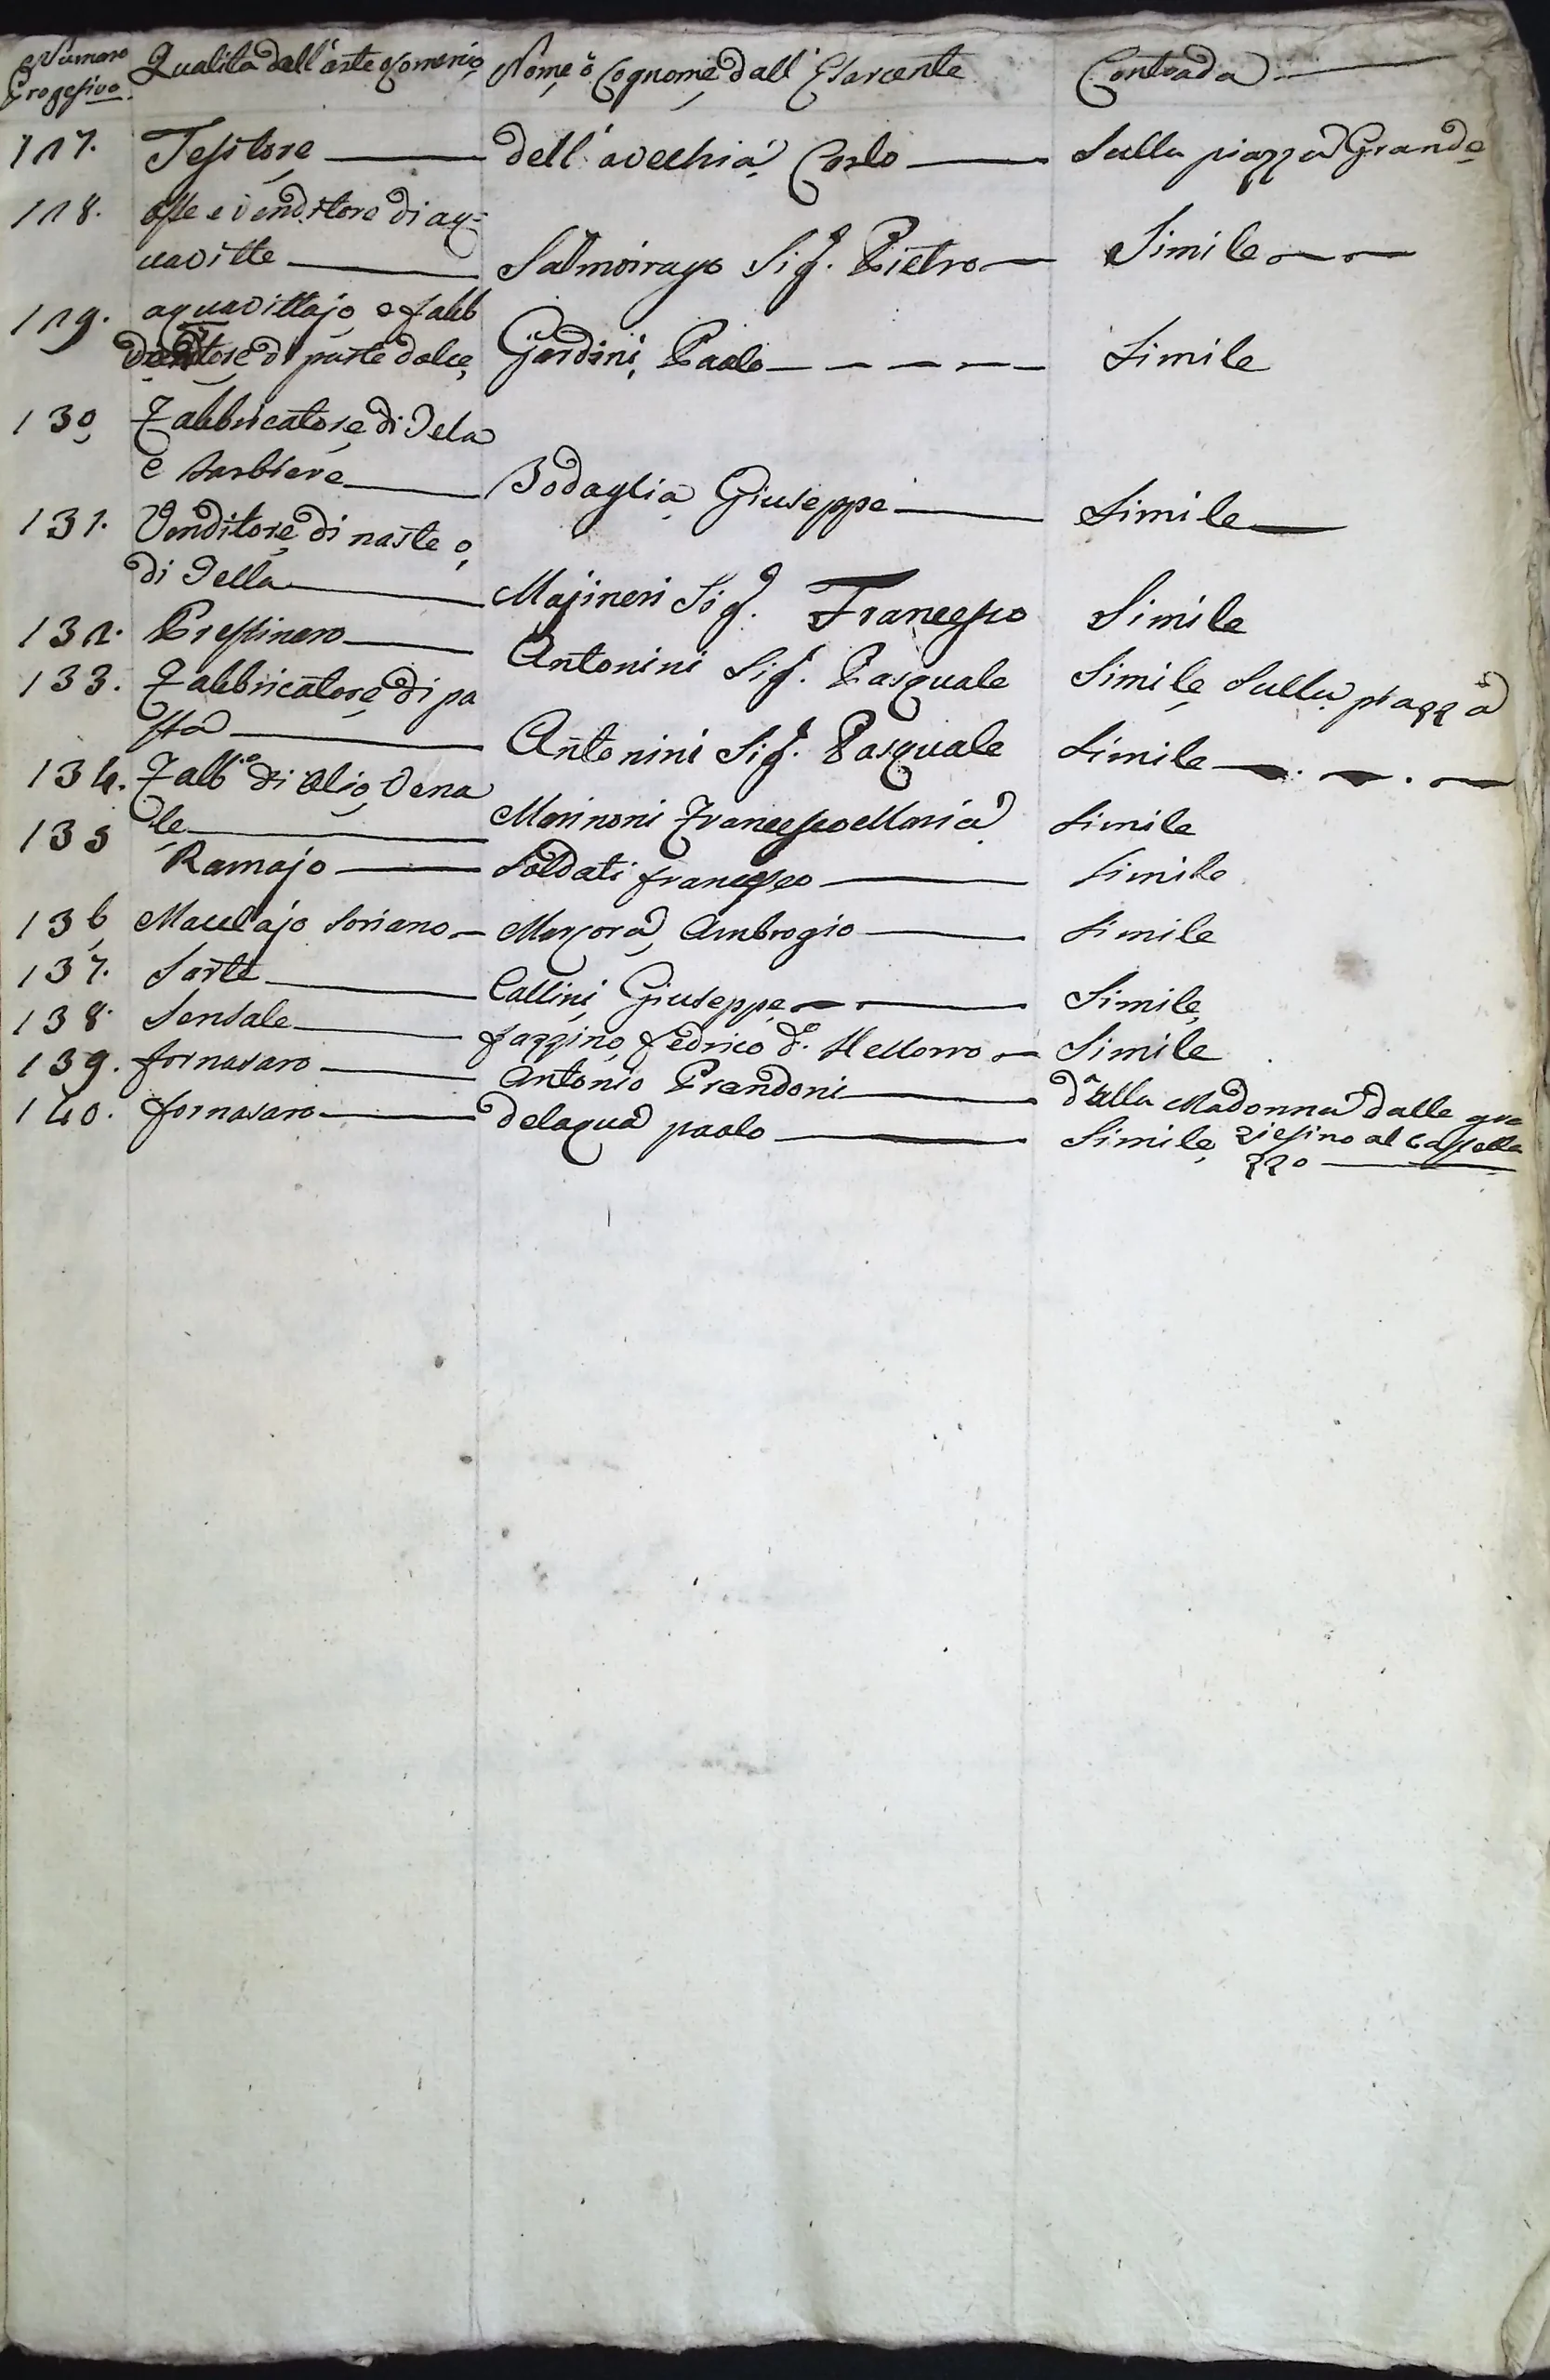 Numero Progesivo. Qualità dell'arte o Comercio Nome, ò Cognome, dall' Esarcente Contrada
127. Tesitore dell'avechia Carlo Sulla piazza Grande
128. oste e venditore di aq=
uavitte Salmoirago Sig.r Pietro Simile
129. aquavittajo e fabb
venditore di paste dolce Gardini, Paolo Simile
130 Fabbricatore di Tela
e barbiere Bodaglia Giuseppe Simile
131. Venditore di nastri e,
di Tella Majineri Sig.r Francesco Simile
132. Prestinero Antonini Sig.r Pasquale Simile Sulla piazza
133. Fabbricatore di pa
sta Antonini Sig.r Pasquale Simile
134. Fabb.e di olio Vena
le Marinoni Francesco Maria Simile
135 Ramajo Soldati francesco Simile
136 Macelajo Soriano Marcora Ambrogio Simile
137. Sarte Callini Giuseppe Simile
138. Sensale fazzino fedrico d.o Simile
139. fornasaro Antonio Prandoni d'alla Madonna dalle gra
140. fornasaro delaqua paolo Simile, ziesino al Castella
zzo